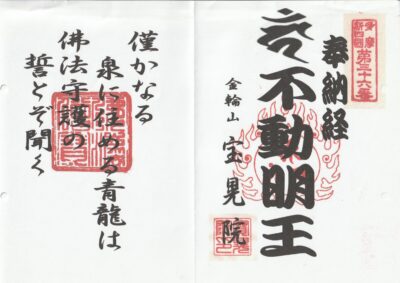 多摩
新四国
第三十六番
奉納経
不動明王
金輪山
宝晃院
僅かなる
泉に住める青龍は
佛法守護の
誓とぞ聞く